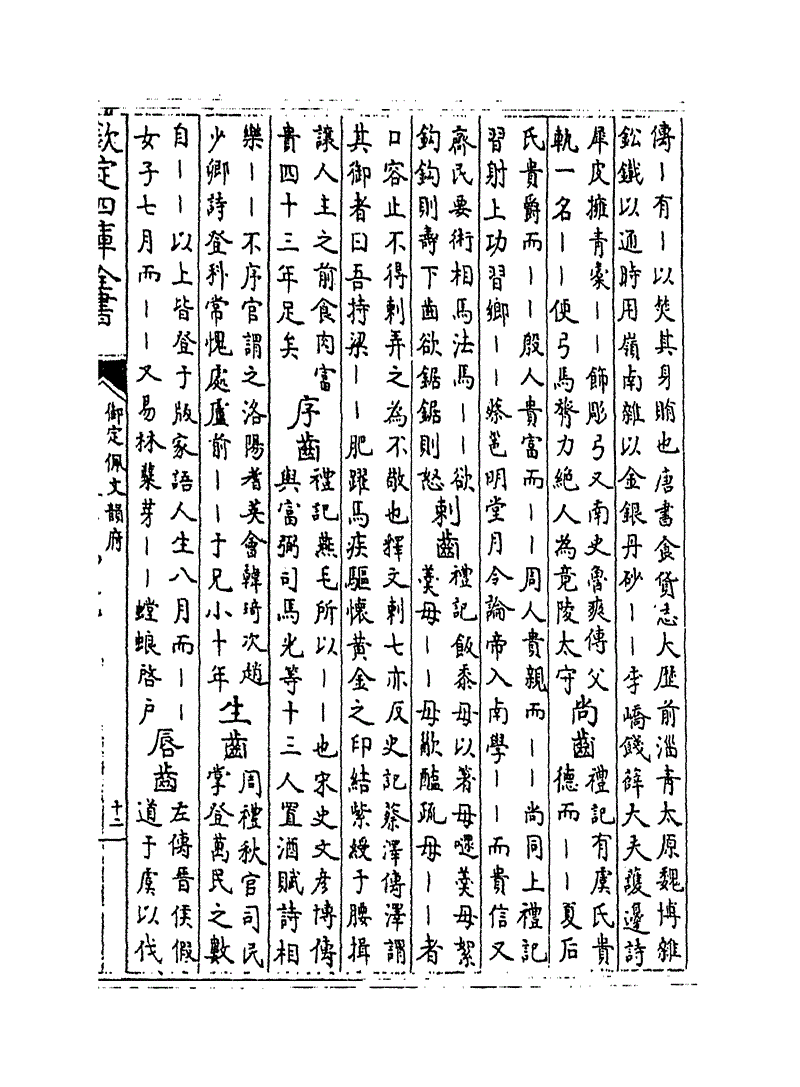 傳｜有｜以焚其身賄也唐書食貨志大歴前淄青太原魏博雜
鉛鐵以通時用嶺南雜以金銀丹砂｜｜李嶠餞薛大夫䕶邊詩
犀皮擁青櫜｜｜飾彫弓又南史魯爽傳父
軌一名｜｜便弓馬膂力絶人為竟陵太守
尚齒
禮記有虞氏貴
德而｜｜夏后
氏貴爵而｜｜殷人貴富而｜｜周人貴親而｜｜尚同上禮記
習射上功習鄉｜｜蔡邕明堂月令論帝入南學｜｜而貴信又
齊民要術相馬法馬｜｜欲
鈎鈎則壽下齒欲鋸鋸則怒
刺齒
禮記飯黍毋以箸毋嚃羮毋絮
羮毋｜｜毋歠醢疏毋｜｜者
口容止不得刺弄之為不敬也釋文刺七亦反史記蔡澤傳澤謂
其御者曰吾持粱｜｜肥躍馬疾驅懐黄金之印結紫綬于腰揖
讓人主之前食肉富
貴四十三年足矣
序齒
禮記燕毛所以｜｜也宋史文彦博傳
與富弼司馬光等十三人置酒賦詩相
樂｜｜不序官謂之洛陽耆英會韓琦次趙
少卿詩登科常愧處廬前｜｜于兄小十年
生齒
周禮秋官司民
掌登萬民之數
自｜｜以上皆登于版家語人生八月而｜｜
女子七月而｜｜又易林蘖芽｜｜螳蜋啓戸
唇齒
左傳晉侯假
道于虞以伐
欽定四庫全書
御定佩文韻府
十二